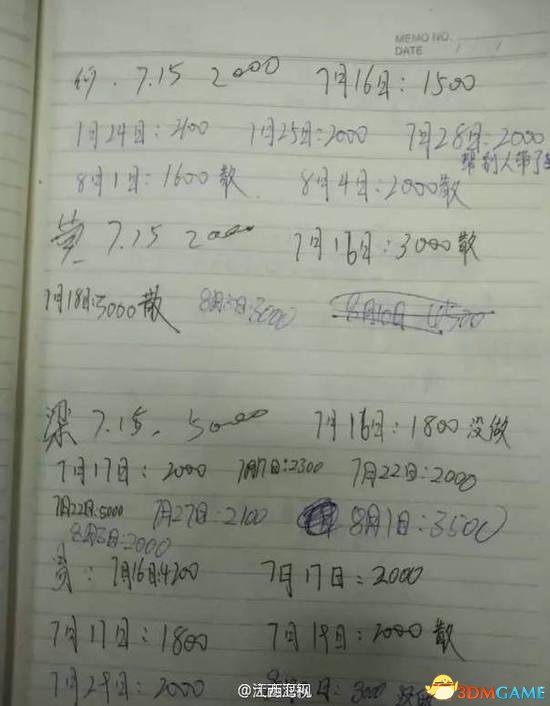 MEMO NO.
DATE / /
7.15 2000 7月16日:1500
1月24日:2100 1月25日:2000 7月28日:2000
帮别人带了
8月1日:1600散 8月4日:2000散
7.15 2000 7月16日:3000散
7月18日:5000散 8月3日:3000 8月10日 4500
梁 7.15. 5000 7月16日:1800没做
7月17日:2000 7月17日:2300 7月22日:2000
7月22日:5000 7月27日:2100 8月1日:3500
8月3日:2000
员:7月16日:4200 7月17日:2000
7月17日:1800 7月19日:2000 散
7月29日:2000 3000
@江西
3DMGAME